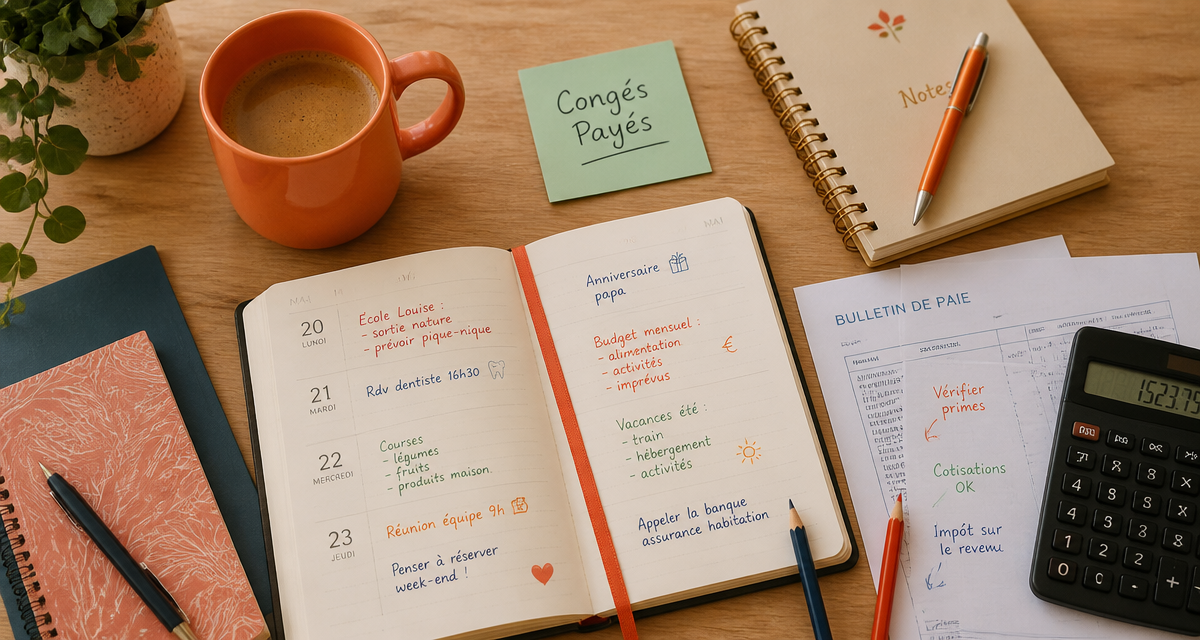 Congés
Payés
Notes
MAI
20
LUNDI
École Louise :
- sortie nature
- prévoir pique-nique
21
MARDI
Rdv dentiste 16h30
22
MERCREDI
Courses
- légumes
- fruits
- produits maison.
23
JEUDI
Réunion équipe 9h
Penser à réserver
week-end !
Anniversaire
papa
Budget mensuel :
- alimentation
- activités
- imprévus
€
Vacances été :
- train
- hébergement
- activités
Appeler la banque
assurance habitation
BULLETIN DE PAIE
Vérifier
primes
Cotisations
OK
Impót sur
le revenu